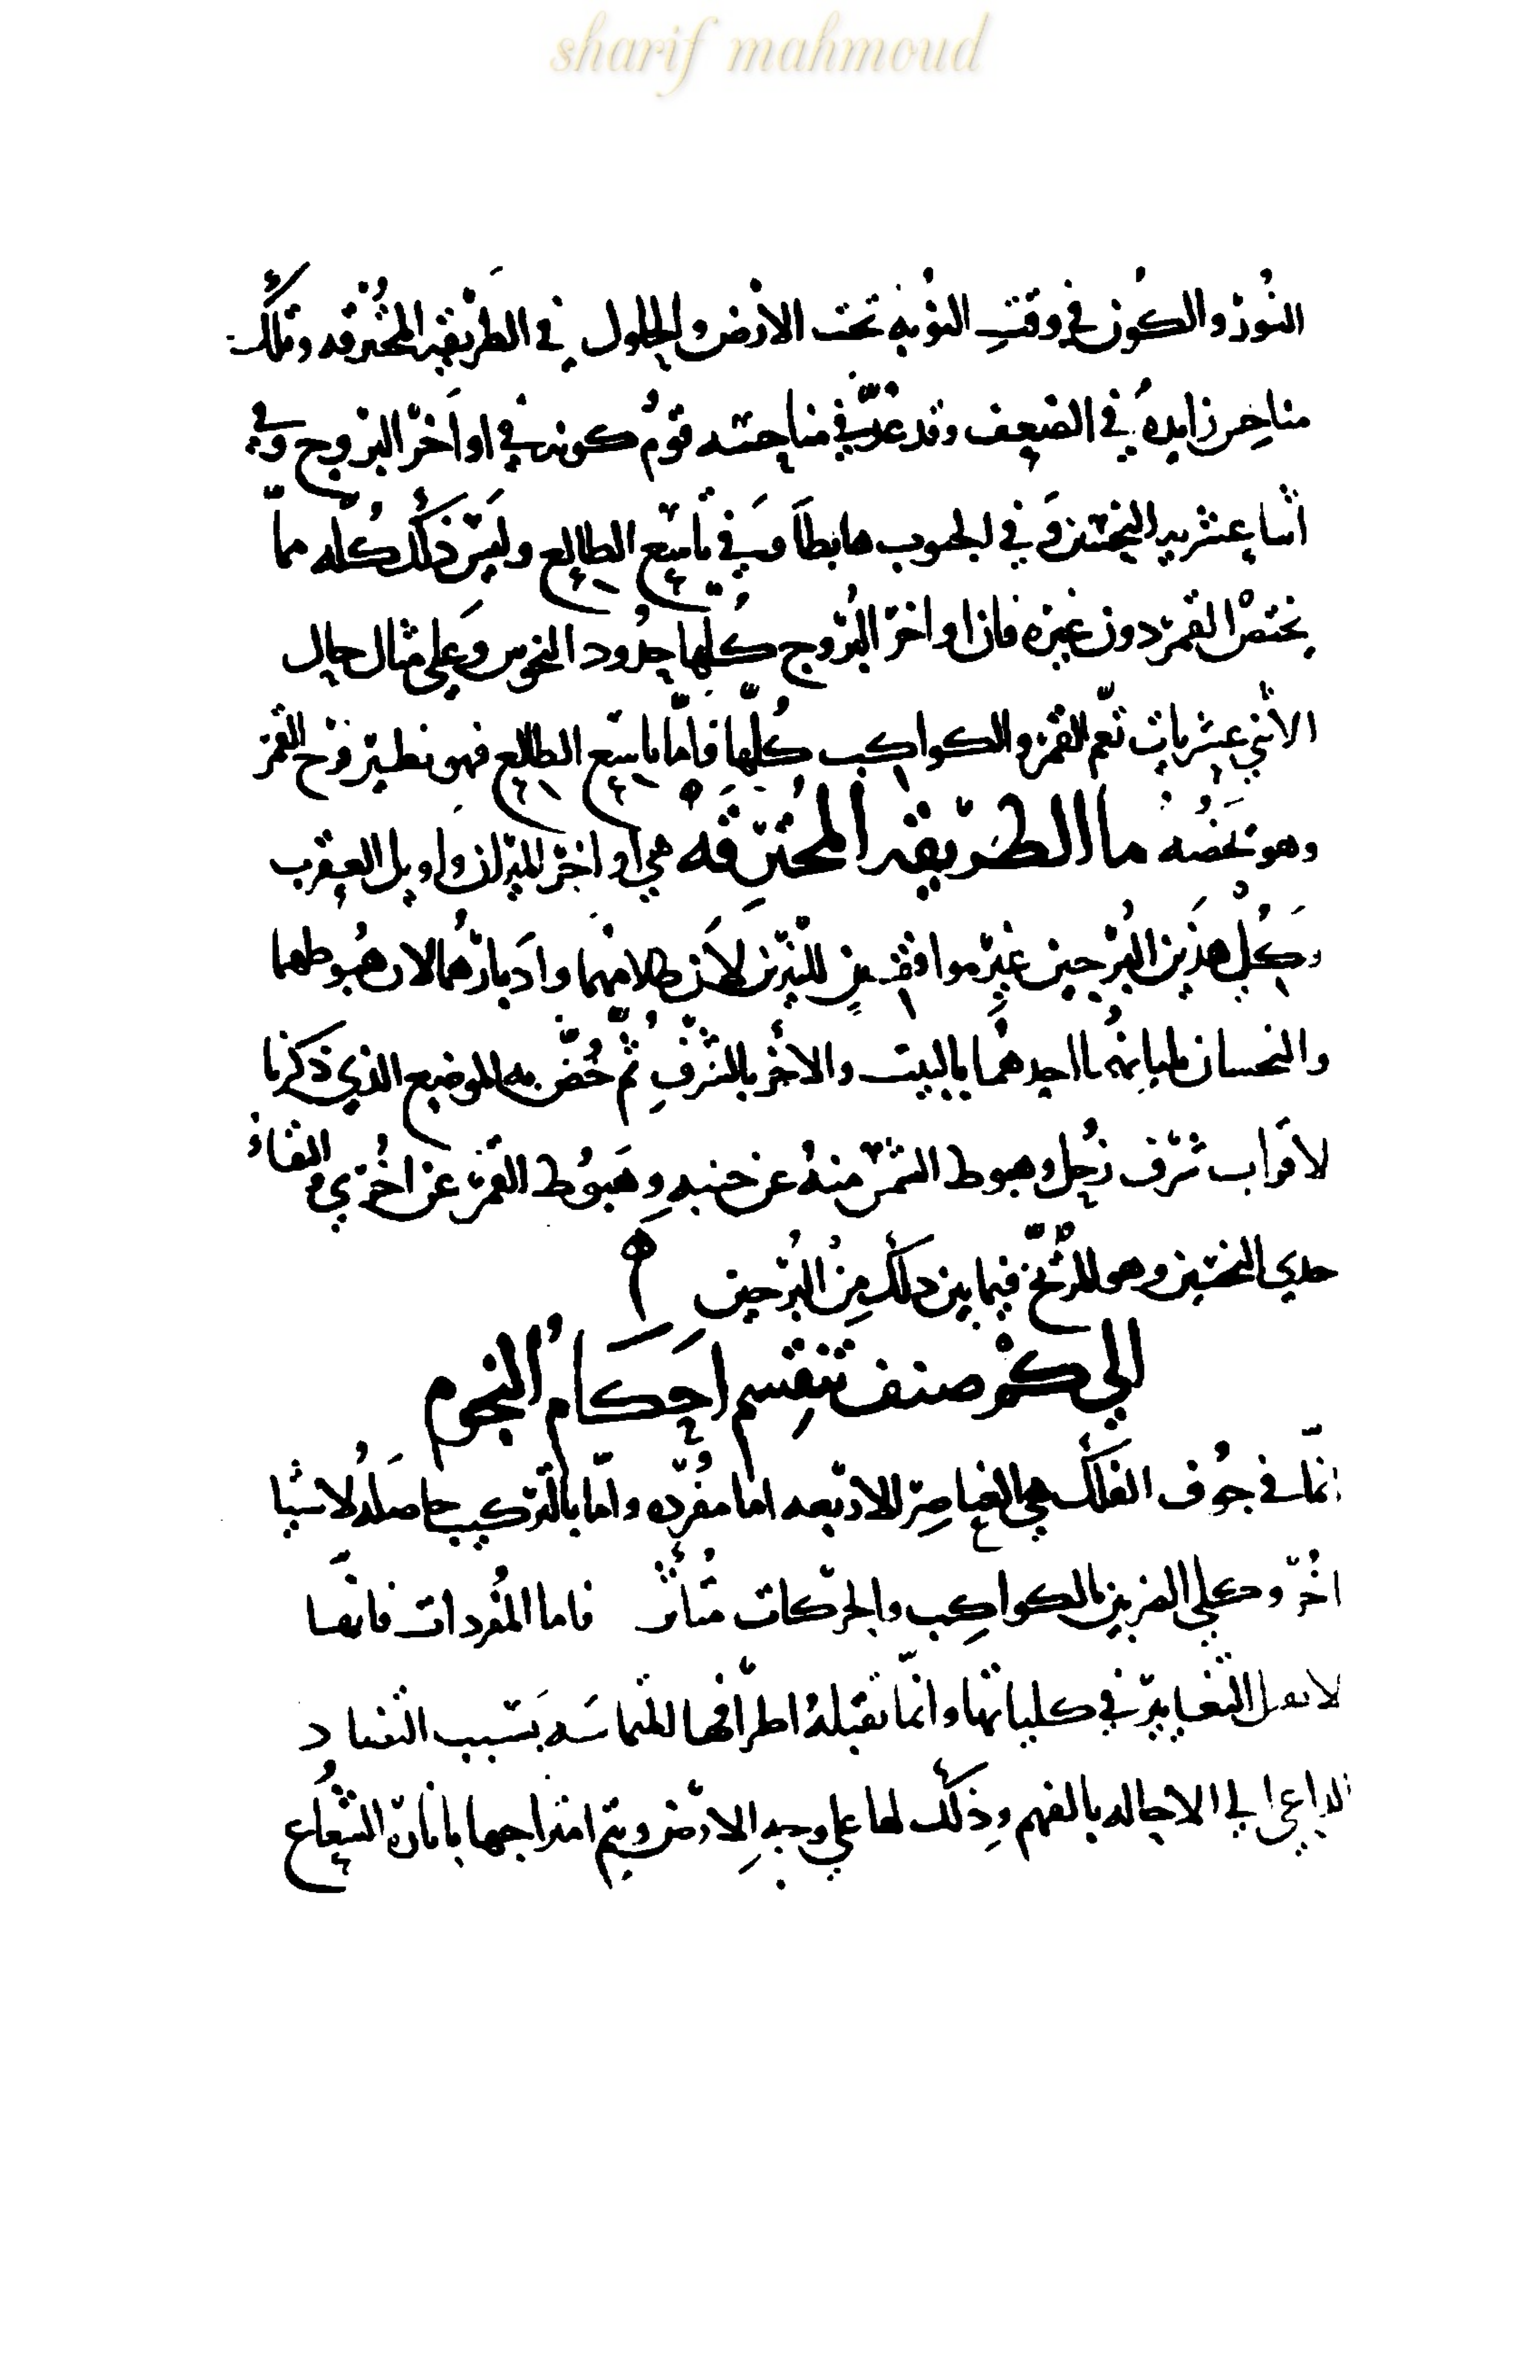 sharif mahmoud
النور والكون في وقت النوبه تحت الارض والحلول في الطريقه المحترقه وتلك
مناحس زايده في الضعف وقد عد في مناحسه قوم كونه في اواخر البروج وفي
اثنا عشريه النحسين وفي الجنوب هابطا وفي تاسع الطالع وليس ذلك كله مما
يختص القمر دون غيره فان اواخر البروج كلها حدود النحوس وعلى مثال حال
الاثني عشريات تعم القمر والكواكب كلها فاما تاسع الطالع فهو نظير فرح القمر
وهو تخصه ما الطريقه المحترقه هي اواخر الميزان واويل العقرب
وكل هذين البرجين غير موافقين للنيرين لان ظلامهما وادبارهما لان هبوطهما
والنحسان احدهما بالبيت والاخر بالشرف ثم خص به الموضع الذي ذكرنا
لاقراب شرف زحل وهبوط الشمس منه عن جنبه وهبوط القمر عن اخرى والتقاء
حدي النحسين وهو للمريخ فيما بين ذلك من البرجين
الي كم صنف تنقسم احكام النجوم
انما في جوف الفلك هي العناصر الاربعه اما مفرده واما بالتركيب حاصله لاشيا
اخر وكلي الضربين بالكواكب والحركات متأثر فاما المفردات فانها
لا تقبل التغايير في كلياتها وانما تقبله اطرافها المتماسه بسبب التضاد
الداعي الى الاحاله بالقهر وذلك لها على وجه الارض ويتم امتزاجها باثاره الشعاع